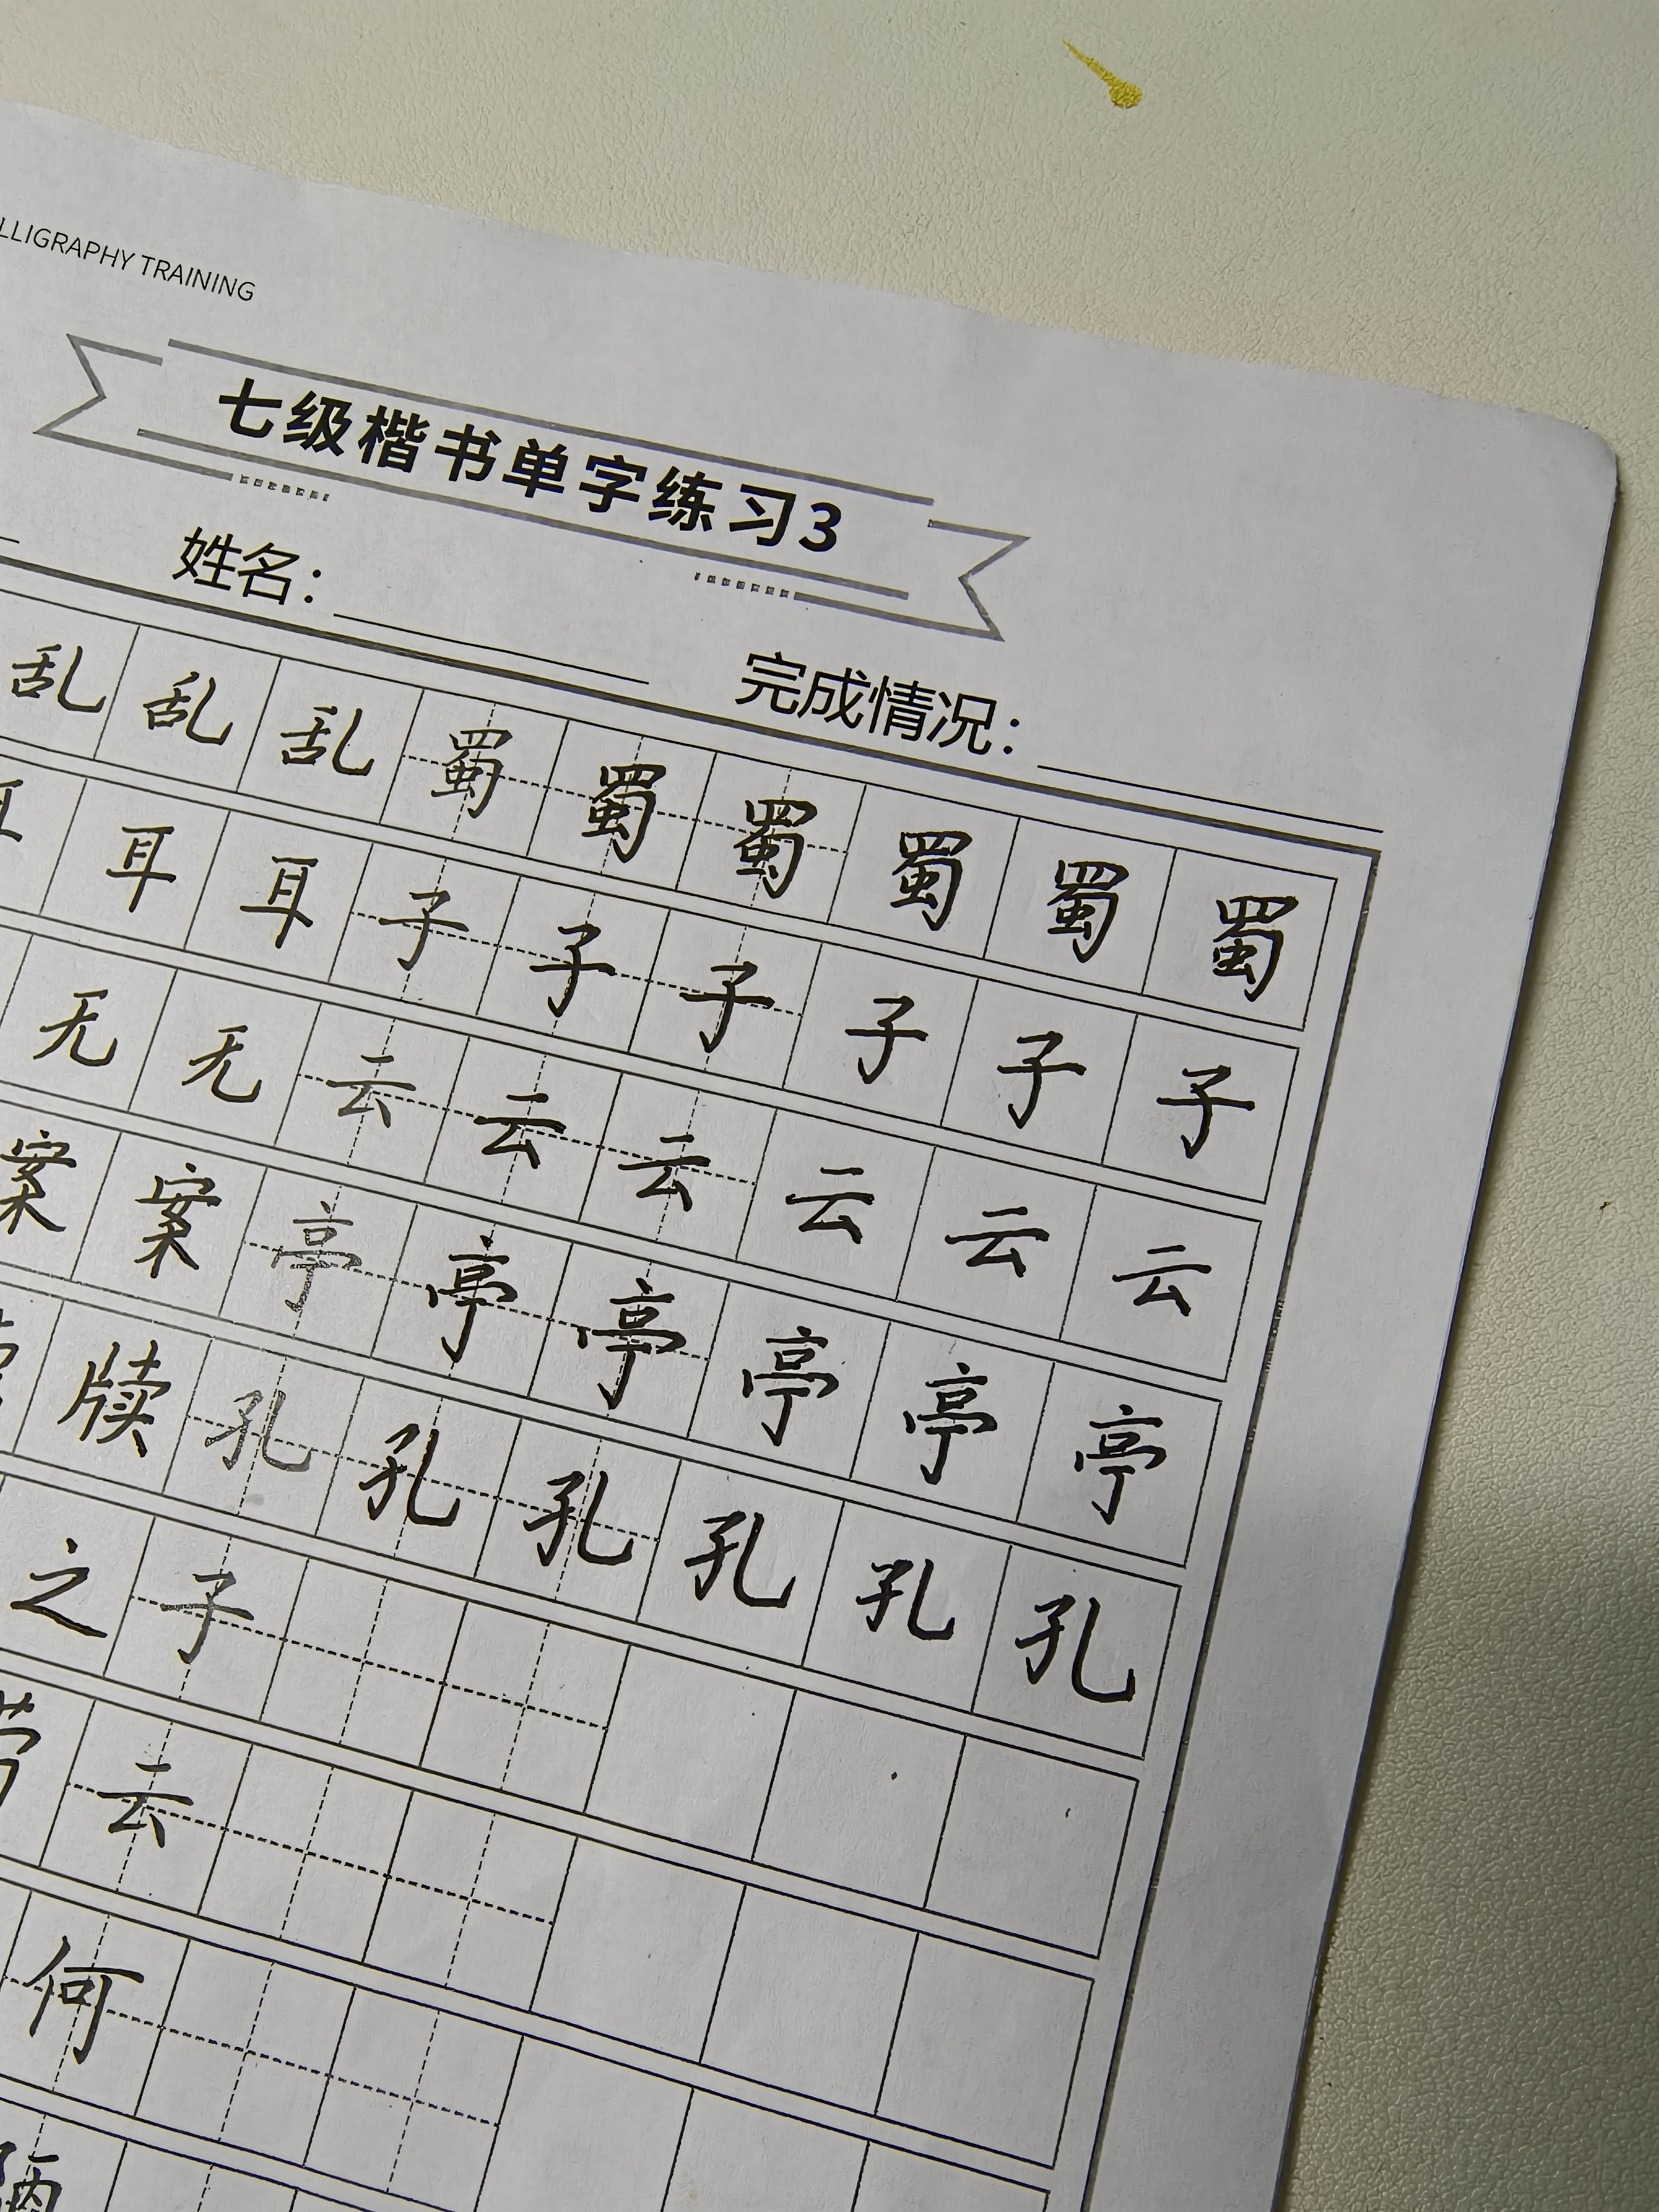 LLIGRAPHY TRAINING
七级楷书单字练习3
姓名：
完成情况：
乱乱乱蜀蜀蜀蜀蜀蜀
耳耳子子子子子子
无无云云云云云云
案案亭亭亭亭亭亭
牍孔孔孔孔孔孔
之子
云
何